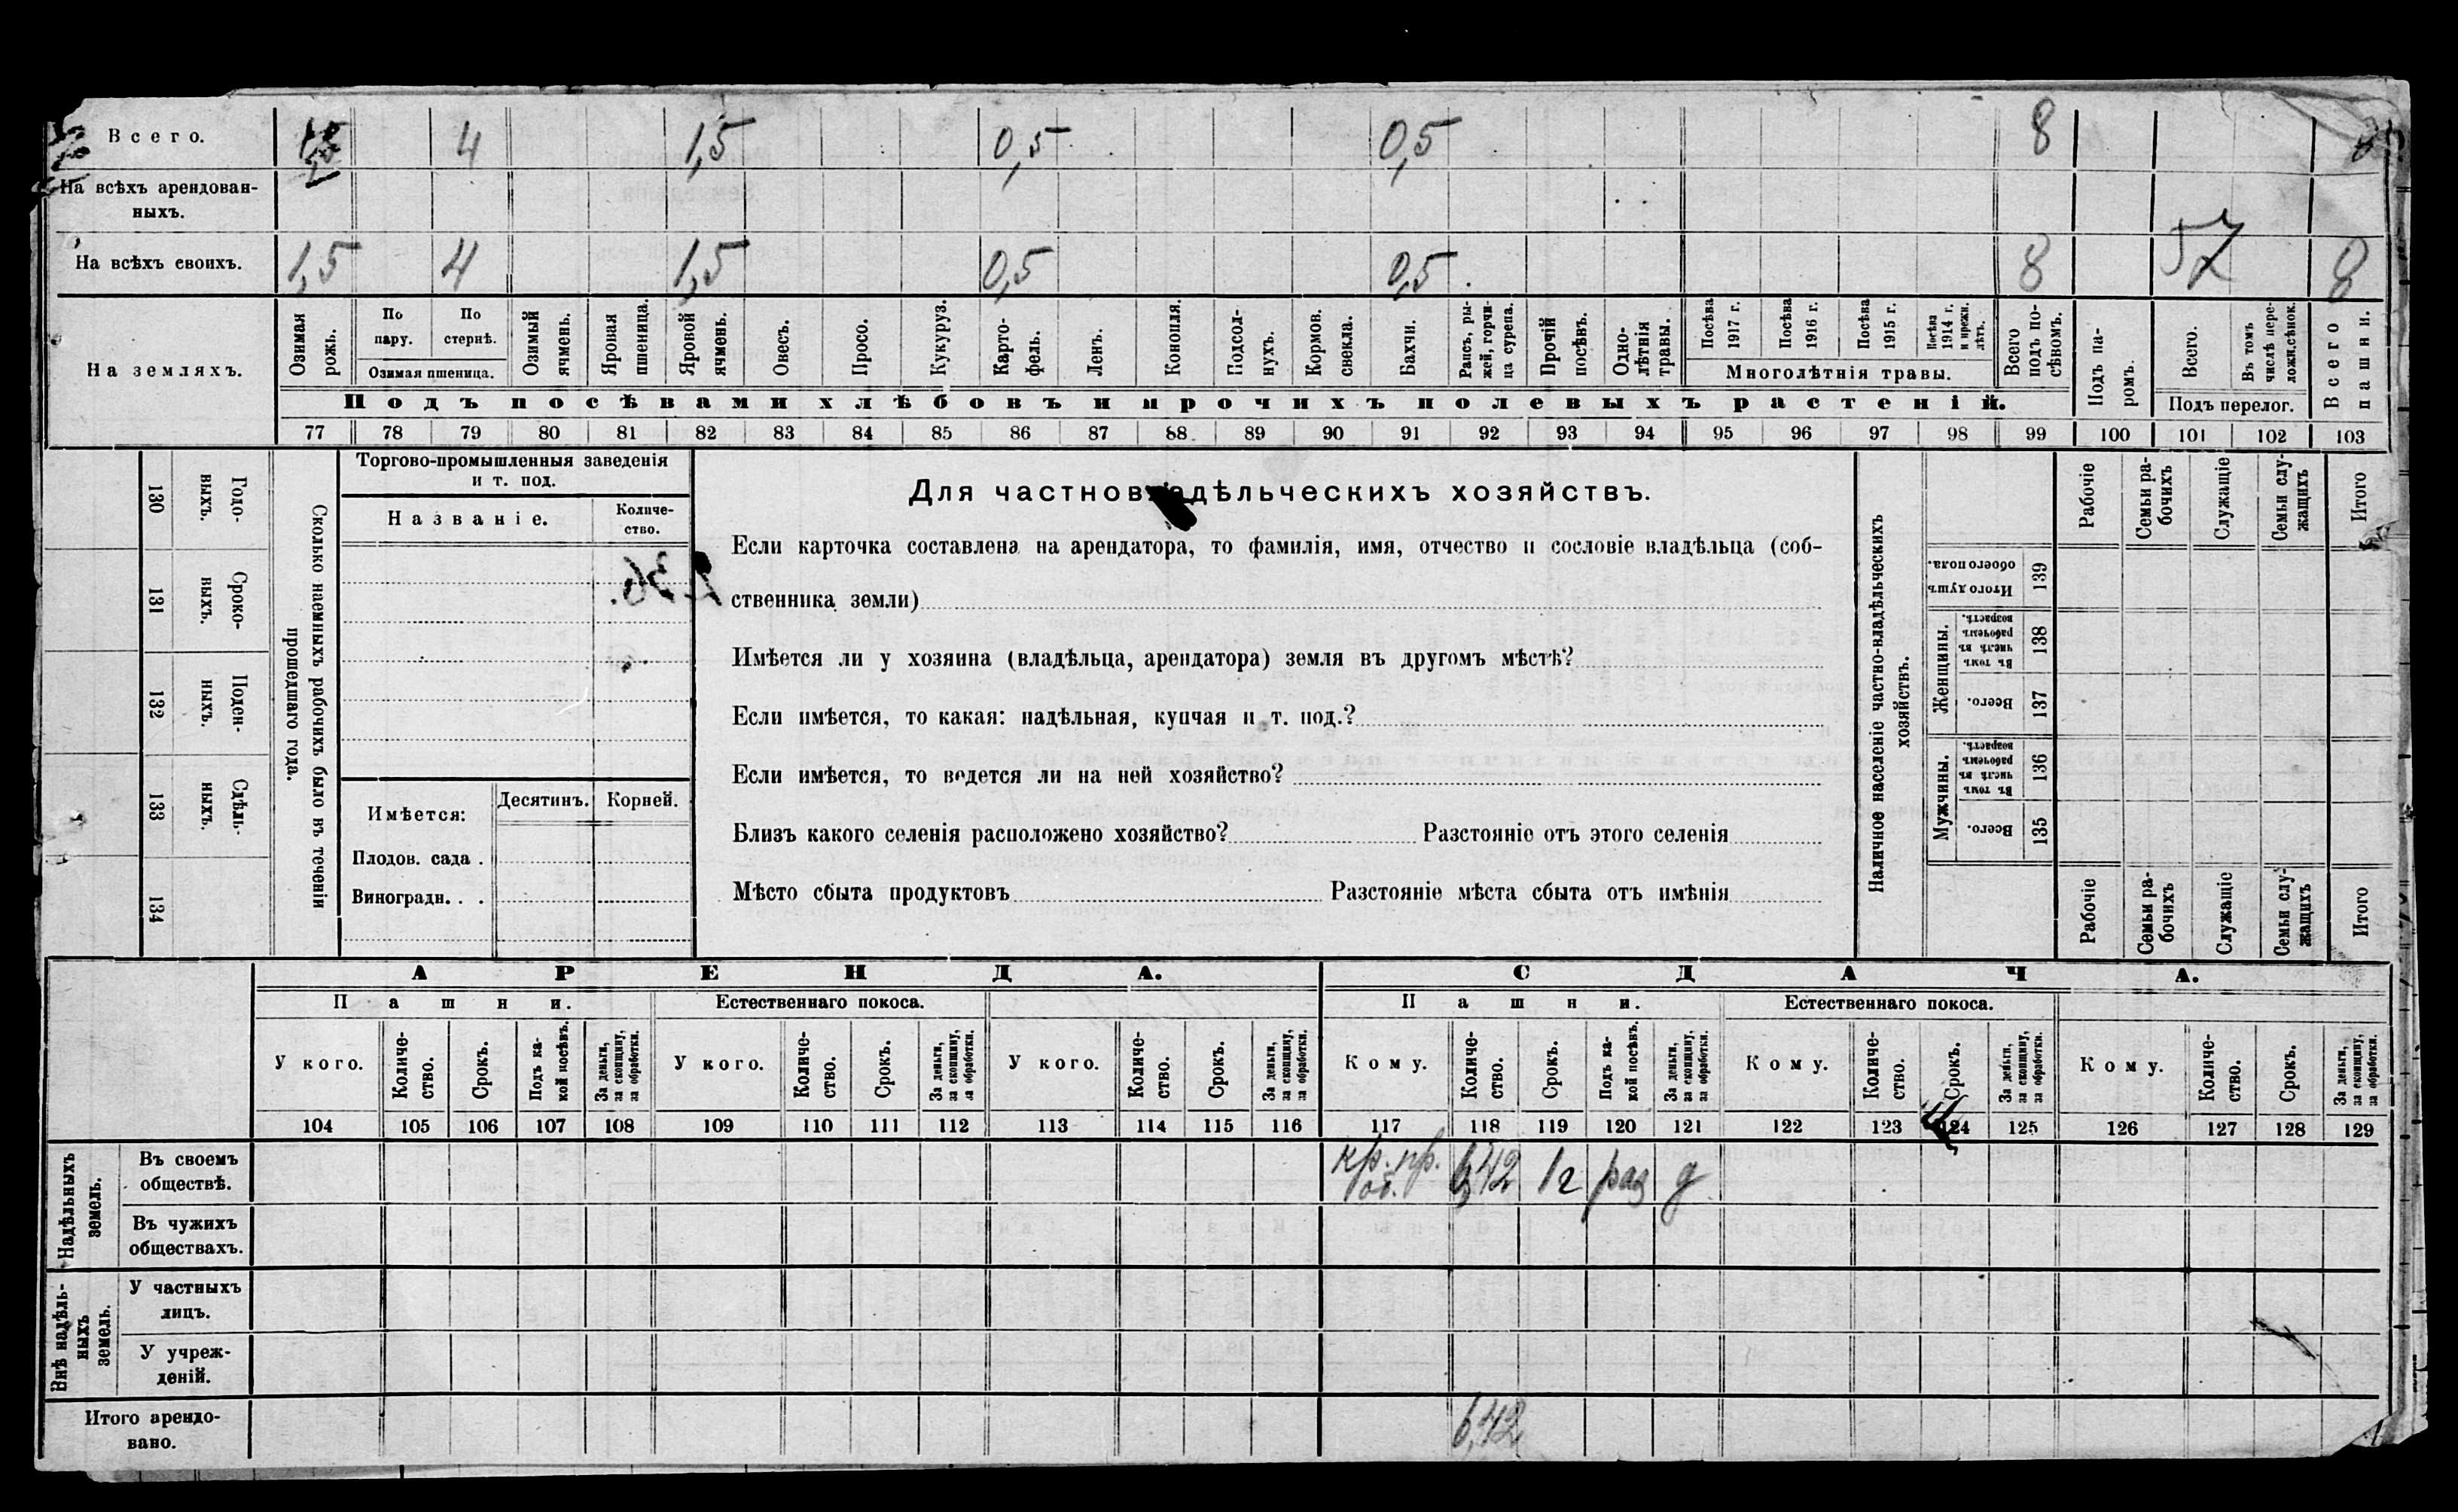 Всего. 1,5 4 1,5 0,5 0,5 8 8
На всѣхъ арендован-
ныхъ.
На всѣхъ своихъ. 1,5 4 1,5 0,5 0,5 8 57 8
На земляхъ.
Озимая рожь.
По пару.
По стернѣ.
Озимая пшеница.
Озимый ячмень.
Яровая пшеница.
Яровой ячмень.
Овесъ.
Просо.
Кукуруз.
Карто-
фель.
Ленъ.
Конопля.
Подсол-
нухъ.
Кормов.
свекла.
Бахчи.
Рапсъ, ры-
жей, горчи-
ца сурепа.
Прочій
посѣвъ.
Одно-
лѣтнія
травы.
Посѣва 1917 г.
Посѣва 1916 г.
Посѣва 1915 г.
Посѣва 1914 г. и прежн. лѣтъ.
Многолѣтнія травы.
Всего
подъ по-
сѣвомъ.
Подъ па-
ромъ.
Всего.
Въ томъ
числѣ пере-
ложн. сѣнок.
Подъ перелог.
Всего
пашни.
Подъ посѣвами хлѣбовъ и прочихъ полевыхъ растеній.
77 78 79 80 81 82 83 84 85 86 87 88 89 90 91 92 93 94 95 96 97 98 99 100 101 102 103
130 Годо-
выхъ.
131 Сроко-
выхъ.
132 Поден-
ныхъ.
133 Сдѣль-
ныхъ.
134
Сколько наемныхъ рабочихъ было въ теченіи
прошедшаго года.
Торгово-промышленныя заведенія
и т. под.
Названіе.
Количе-
ство.
Имѣется:
Десятинъ.
Корней.
Плодов. сада .
Виноградн. . .
Для частновладѣльческихъ хозяйствъ.
Если карточка составлена на арендатора, то фамилія, имя, отчество и сословіе владѣльца (соб-
ственника земли)
Имѣется ли у хозяина (владѣльца, арендатора) земля въ другомъ мѣстѣ?
Если имѣется, то какая: надѣльная, купчая и т. под.?
Если имѣется, то ведется ли на ней хозяйство?
Близъ какого селенія расположено хозяйство? Разстояніе отъ этого селенія
Мѣсто сбыта продуктовъ Разстояніе мѣста сбыта отъ имѣнія
Наличное населеніе частно-владѣльческихъ
хозяйствъ.
Рабочіе
Семьи ра-
бочихъ
Служащіе
Семьи слу-
жащихъ
Итого
Итого душъ
обоего пола.
139
Женщины.
Въ томъ числѣ въ рабочемъ возрастѣ.
138
Всего.
137
Мужчины.
Въ томъ числѣ въ рабочемъ возрастѣ.
136
Всего.
135
Рабочіе
Семьи ра-
бочихъ
Служащіе
Семьи слу-
жащихъ
Итого
АРЕНДА. СДАЧА.
Пашни. Естественнаго покоса. Пашни. Естественнаго покоса.
У кого.
Количе-
ство.
Срокъ.
Подъ ка-
кой посѣвъ.
За деньги,
за скопщину,
за обработки.
У кого.
Количе-
ство.
Срокъ.
За деньги,
за скопщину,
за обработки.
У кого.
Количе-
ство.
Срокъ.
За деньги,
за скопщину,
за обработки.
Кому.
Количе-
ство.
Срокъ.
Подъ ка-
кой посѣвъ.
За деньги,
за скопщину,
за обработки.
Кому.
Количе-
ство.
Срокъ.
За деньги,
за скопщину,
за обработки.
Кому.
Количе-
ство.
Срокъ.
За деньги,
за скопщину,
за обработки.
104 105 106 107 108 109 110 111 112 113 114 115 116 117 118 119 120 121 122 123 124 125 126 127 128 129
Надѣльныхъ
земель.
Въ своемъ
обществѣ.
кр. пр. об. 6,42 1 г раз д
Въ чужихъ
обществахъ.
Внѣ надѣль-
ныхъ
земель.
У частныхъ
лицъ.
У учреж-
деній.
Итого арендо-
вано.
6,42